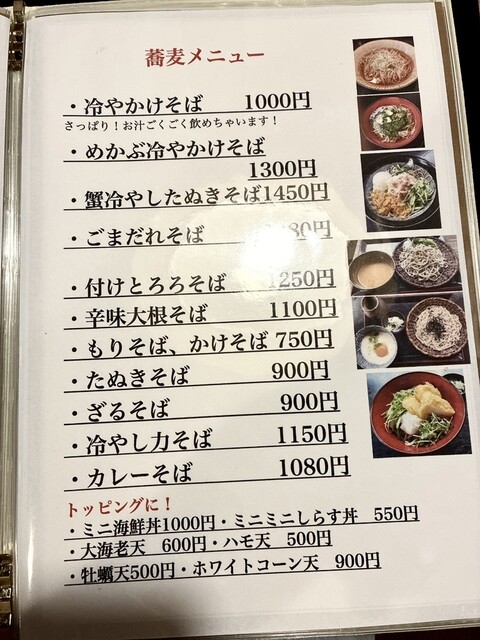 蕎麦メニュー
・冷やかけそば 1000円
さっぱり！お汁ごくごく飲めちゃいます！
・めかぶ冷やかけそば
1300円
・蟹冷やしたぬきそば1450円
・ごまだれそば 80円
・付けとろろそば 1250円
・辛味大根そば 1100円
・もりそば、かけそば 750円
・たぬきそば 900円
・ざるそば 900円
・冷やし力そば 1150円
・カレーそば 1080円
トッピングに！
・ミニ海鮮丼1000円・ミニミニしらす丼 550円
・大海老天 600円・ハモ天 500円
・牡蠣天500円・ホワイトコーン天 900円